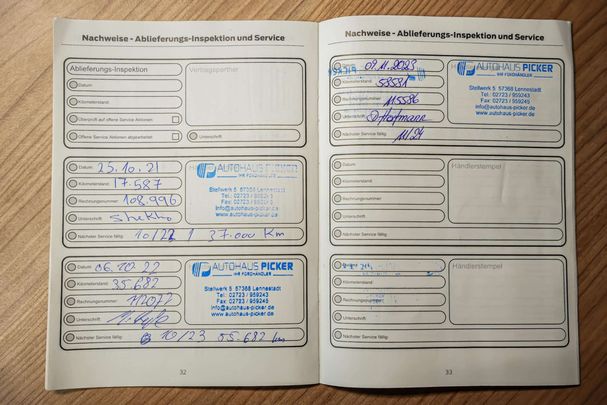 Nachweise - Ablieferungs-Inspektion und Service
Ablieferungs-Inspektion
Vertragspartner
Datum
Kilometerstand
Überprüft auf offene Service Aktionen
Offene Service Aktionen abgearbeitet
Unterschrift
Datum: 25.10.21
Kilometerstand: 17.587
Rechnungsnummer: 108.996
Unterschrift
AUTOHAUS PICKER
IHR FORDHÄNDLER
Stellwerk 5 57368 Lennestadt
Tel.: 02723 / 959243
Fax: 02723 / 959245
info@autohaus-picker.de
www.autohaus-picker.de
Nächster Service fällig: 10/22 / 37.000 Km
Datum: 06.10.22
Kilometerstand: 35.682
Rechnungsnummer:
Unterschrift:
AUTOHAUS PICKER
IHR FORDHÄNDLER
Stellwerk 5, 57368 Lennestadt
Tel.: 02723 / 959243
Fax: 02723 / 959245
info@autohaus-picker.de
www.autohaus-picker.de
Nächster Service fällig: 10/23 55.682 km
32
Nachweise - Ablieferungs-Inspektion und Service
09.11.2023
Kilometerstand: 58591
Rechnungsnummer: 115586
Unterschrift: Hofmann
AUTOHAUS PICKER
IHR FORDHÄNDLER
Stellwerk 5, 57368 Lennestadt
Tel.: 02723 / 959243
Fax: 02723 / 959245
info@autohaus-picker.de
www.autohaus-picker.de
Nächster Service fällig: 11/24
Datum:
Kilometerstand:
Rechnungsnummer:
Unterschrift:
Händlerstempel
Nächster Service fällig:
Kilometerstand:
Rechnungsnummer:
Unterschrift:
Händlerstempel
Nächster Service fällig:
33